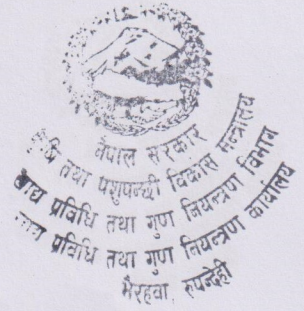 नेपाल सरकार
कृषि तथा पशुपन्छी विकास मन्त्रालय
खाद्य प्रविधि तथा गुण नियन्त्रण विभाग
खाद्य प्रविधि तथा गुण नियन्त्रण कार्यालय
भैरहवा, रुपन्देही